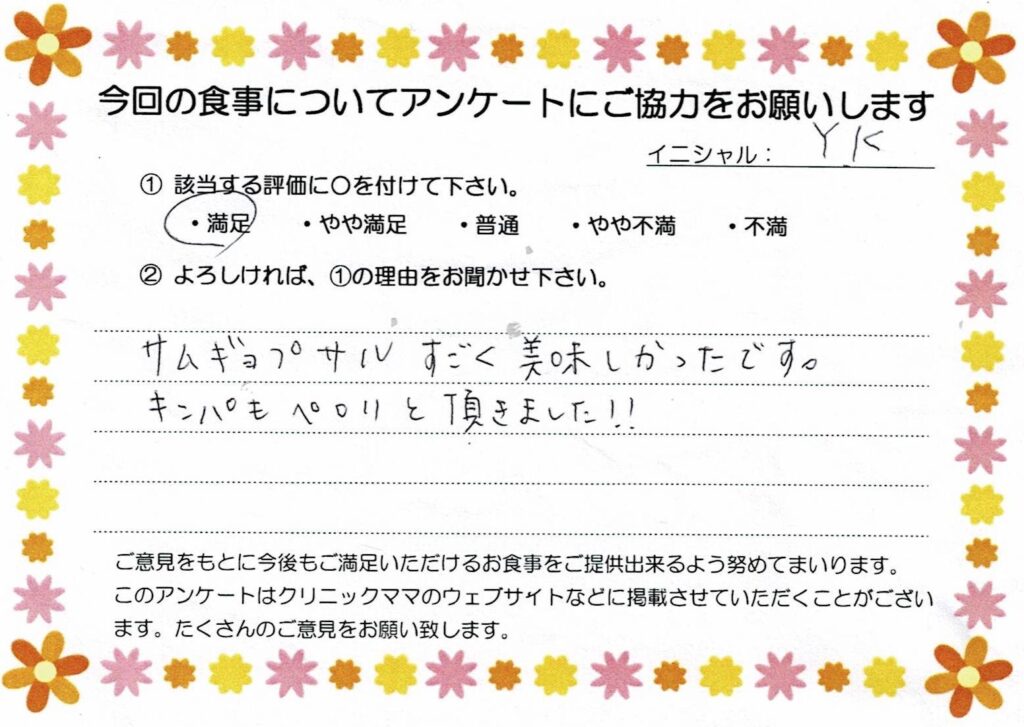 今回の食事についてアンケートにご協力をお願いします
イニシャル： Y.K
① 該当する評価に〇を付けて下さい。
・満足 ・やや満足 ・普通 ・やや不満 ・不満
② よろしければ、①の理由をお聞かせ下さい。
サムギョプサル すごく美味しかったです。
キンパもペロリと頂きました!!
ご意見をもとに今後もご満足いただけるお食事をご提供出来るよう努めてまいります。
このアンケートはクリニックママのウェブサイトなどに掲載させていただくことがござい
ます。たくさんのご意見をお願い致します。